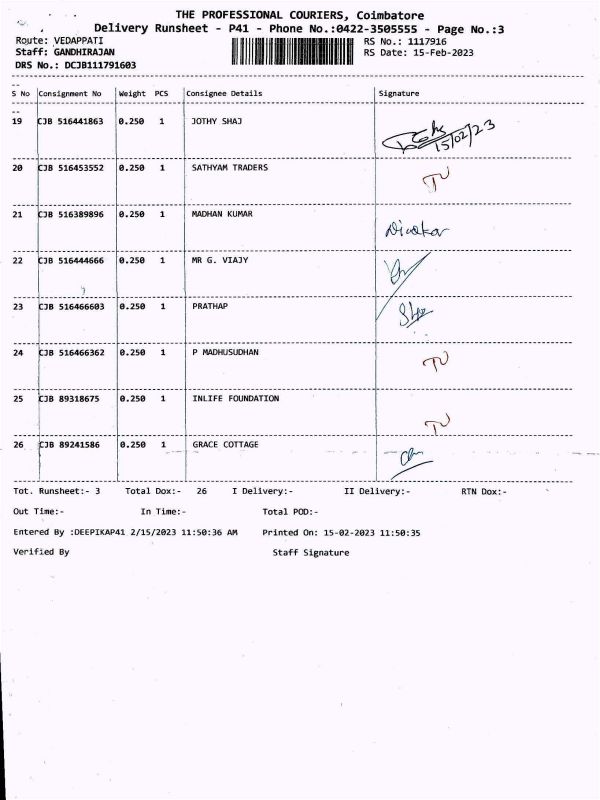 THE PROFESSIONAL COURIERS, Coimbatore
Delivery Runsheet - P41 - Phone No.:0422-3505555 - Page No.:3
Route: VEDAPPATI RS No.: 1117916
Staff: GANDHIRAJAN RS Date: 15-Feb-2023
DRS No.: DCJB111791603
S No Consignment No Weight PCS Consignee Details Signature
19 CJB 516441863 0.250 1 JOTHY SHAJ
15/02/23
20 CJB 516453552 0.250 1 SATHYAM TRADERS
21 CJB 516389896 0.250 1 MADHAN KUMAR
Diwakar
22 CJB 516444666 0.250 1 MR G. VIAJY
23 CJB 516466603 0.250 1 PRATHAP
24 CJB 516466362 0.250 1 P MADHUSUDHAN
25 CJB 89318675 0.250 1 INLIFE FOUNDATION
26 CJB 89241586 0.250 1 GRACE COTTAGE
Tot. Runsheet:- 3 Total Dox:- 26 I Delivery:- II Delivery:- RTN Dox:-
Out Time:- In Time:- Total POD:-
Entered By :DEEPIKAP41 2/15/2023 11:50:36 AM Printed On: 15-02-2023 11:50:35
Verified By Staff Signature